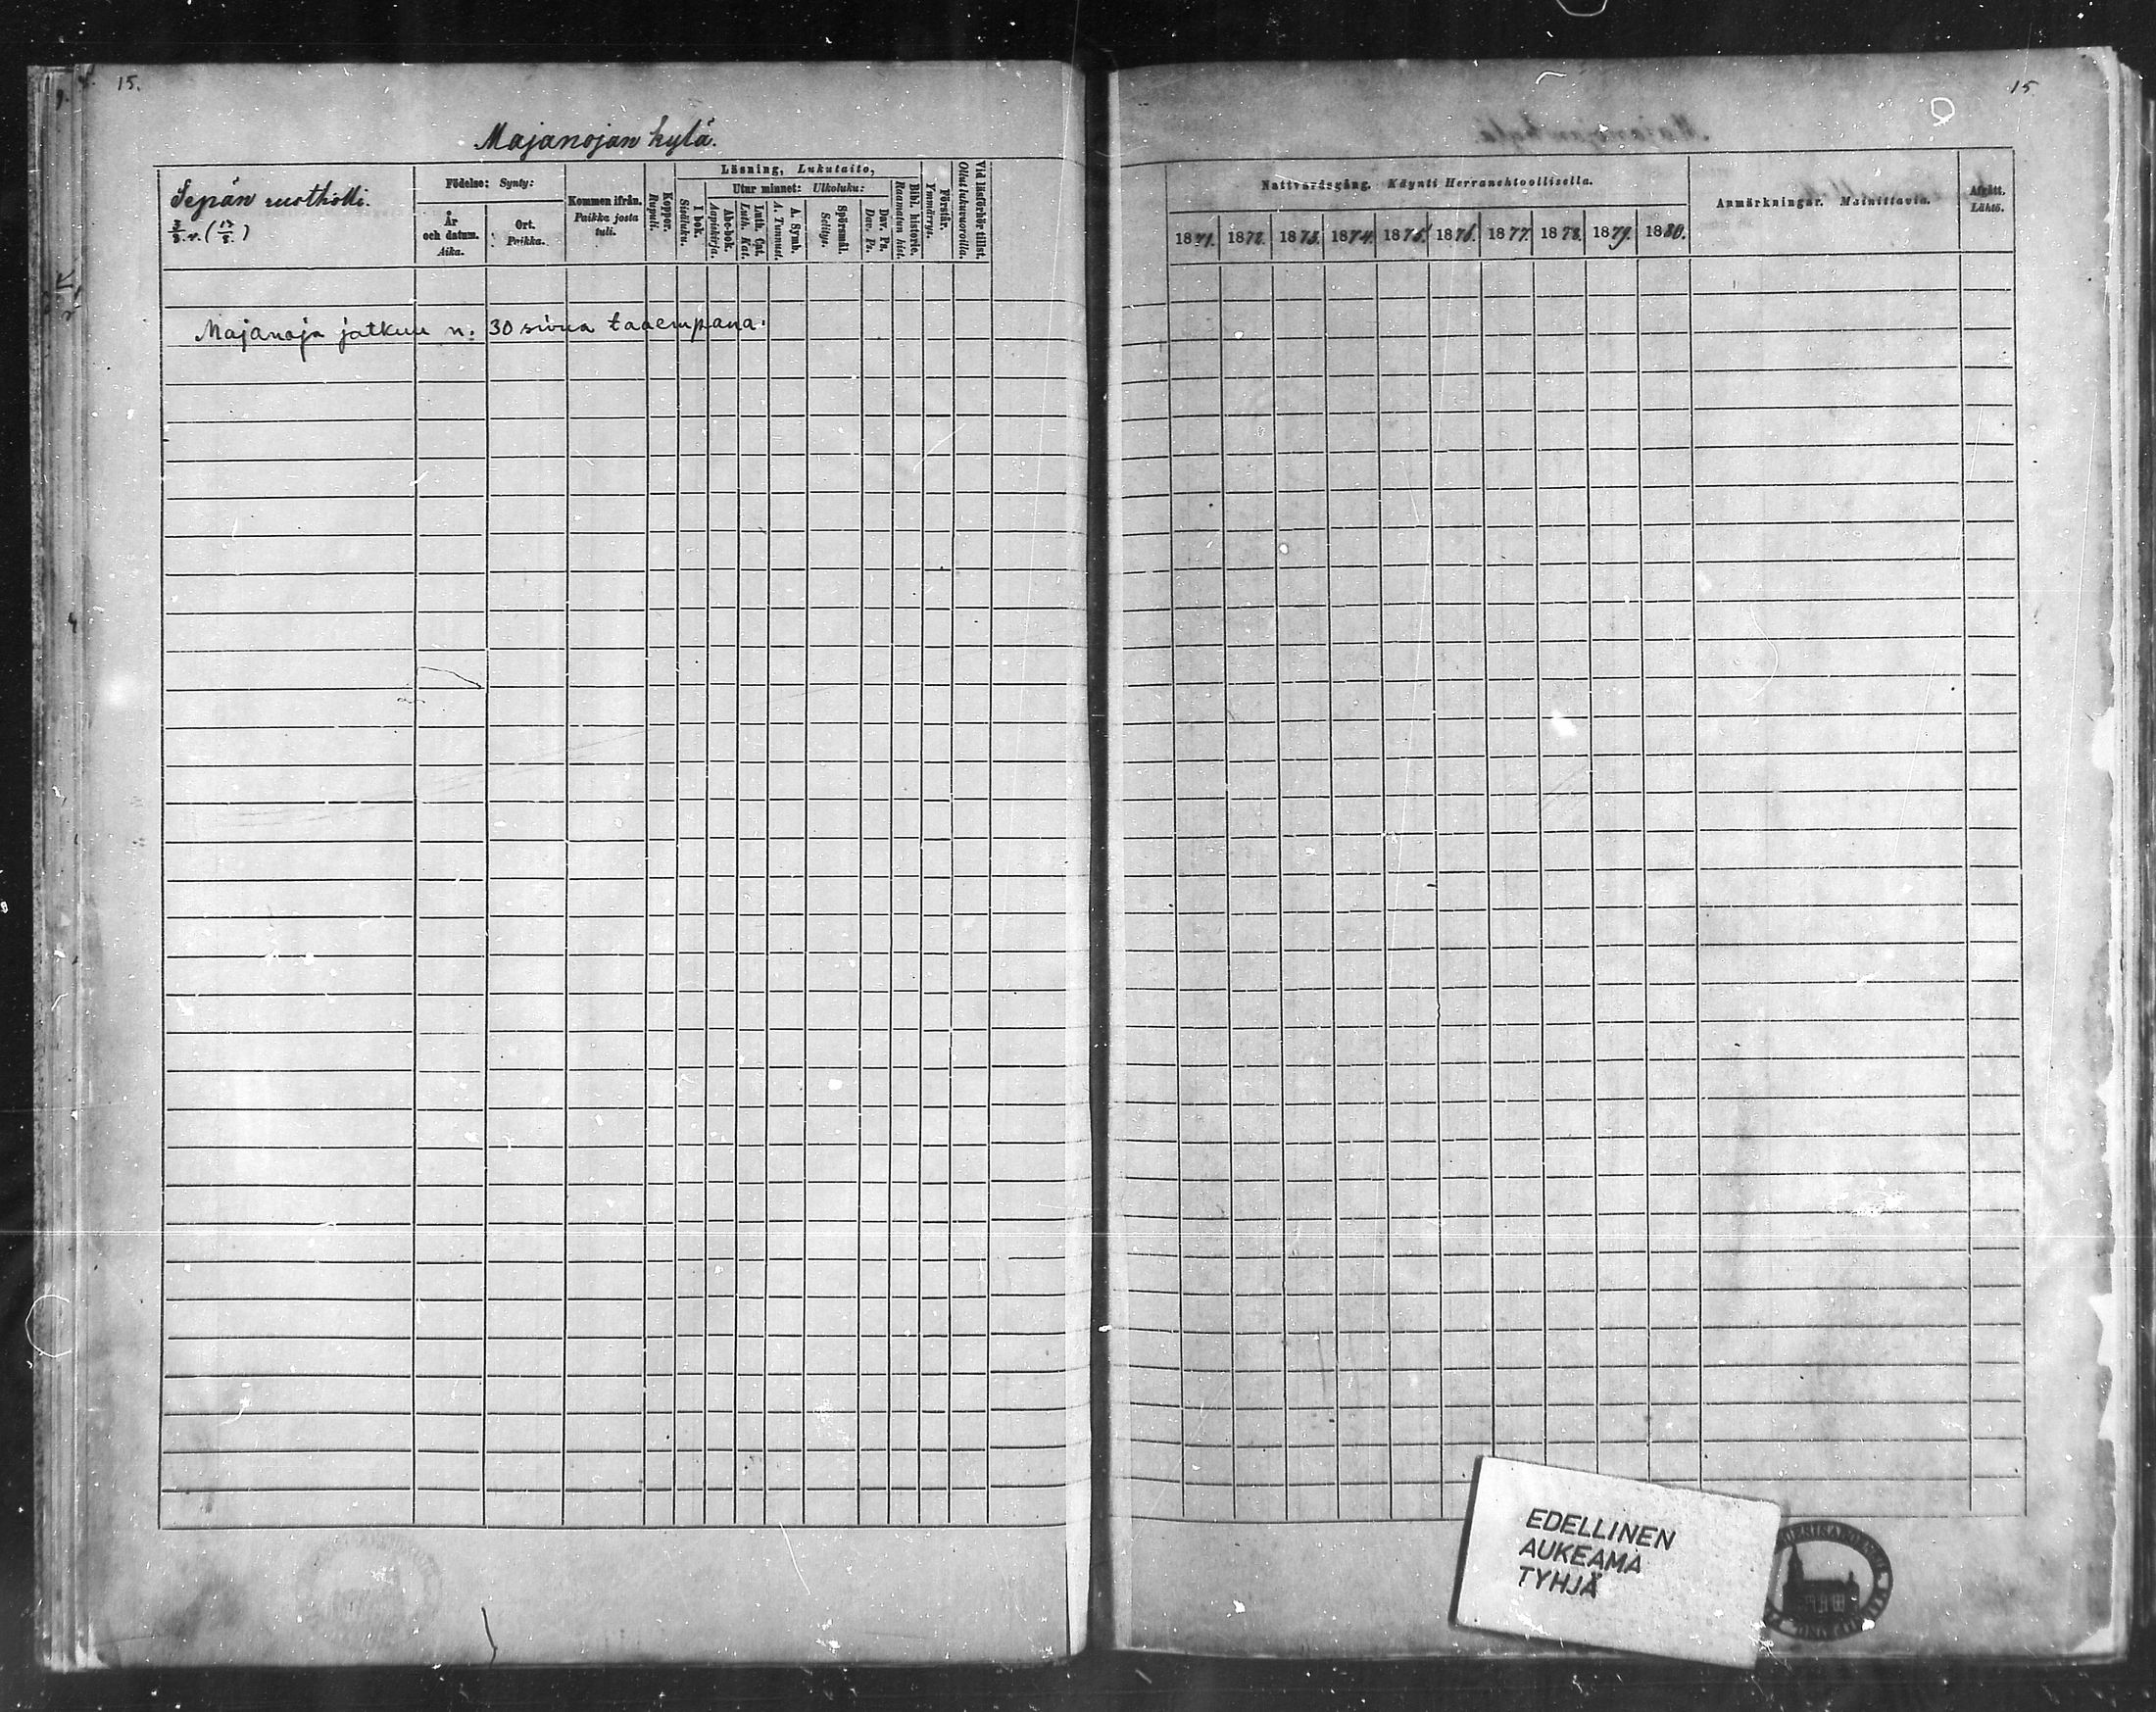 15.
Majanojan kylä.
Sepän rustholli.
3/8 v. (17/8.)
Födelse: Synty:
År och datum. Aika.
Ort. Paikka.
Kommen ifrån. Paikka josta tuli.
Koppor. Rupuli.
Läsning, Lukutaito,
I bok. Sisäluku.
Utur minnet: Ulkoluku:
Abc-bok. Aapiskirja.
Luth. Cat. Luth. Kat.
A. Symb. A. Tunnust.
Spörsmål. Selitys.
Dav. Ps. Dav. Ps.
Bibl. historie. Raamatun hist.
Förstår. Ymmärrys.
Vid läsförhör tillst. Ollut lukuvuoroilla.
Majanoja jatkuu n: 30 sivua taaempana.
15
Nattvardsgång. Käynti Herranehtoollisella.
1871. 1872. 1873. 1874. 1875. 1876. 1877. 1878. 1879. 1880.
Anmärkningar. Mainittavia.
Afgått. Lähtö.
EDELLINEN
AUKEAMA
TYHJÄ